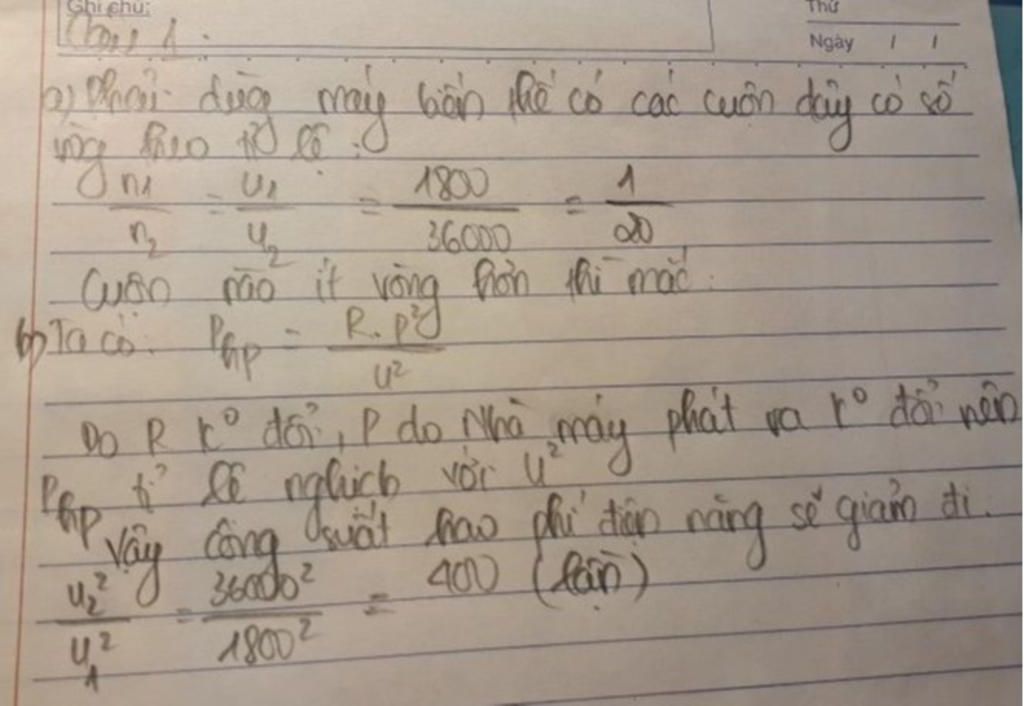 Ghi chú:
Thứ
Câu 1.
Ngày / /
a) Phải dùng máy biến thế có các cuộn dây có số
vòng theo tỷ lệ:
n1/n2 = U1/U2 = 1800/36000 = 1/20
Cuộn nào ít vòng hơn thì mắc.
b) Ta có: Php = R.P²/U²
Do R k° đổi, P do Nhà máy phát ra k° đổi nên
Php tỉ lệ nghịch với U²
Vậy công suất hao phí điện năng sẽ giảm đi.
U2²/U1² = 36000²/1800² = 400 (lần)